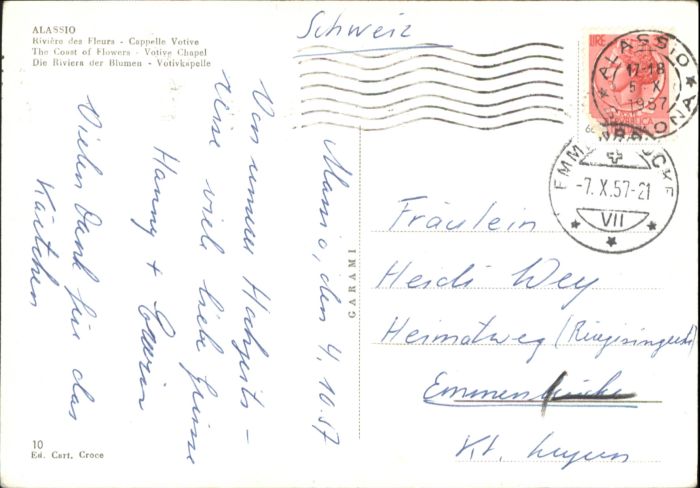 ALASSIO
Rivière des Fleurs - Cappelle Votive
The Coast of Flowers - Votive Chapel
Die Riviera der Blumen - Votivkapelle
Schweiz
LIRE
ALASSIO
17-18
5 X
1957
SAVONA
EMMENBRÜCKE
-7. X. 57-21
VII
Alassio, den 4.10.57
Von unserer Hochzeits-
reise viele liebe Grüsse
Hanny + Edwin
Vielen Dank für das
Kärtchen
GARAMI
Fräulein
Heidi Wey
Heimatweg
Emmenbrücke
Kt. Luzern
10
Ed. Cart. Croce